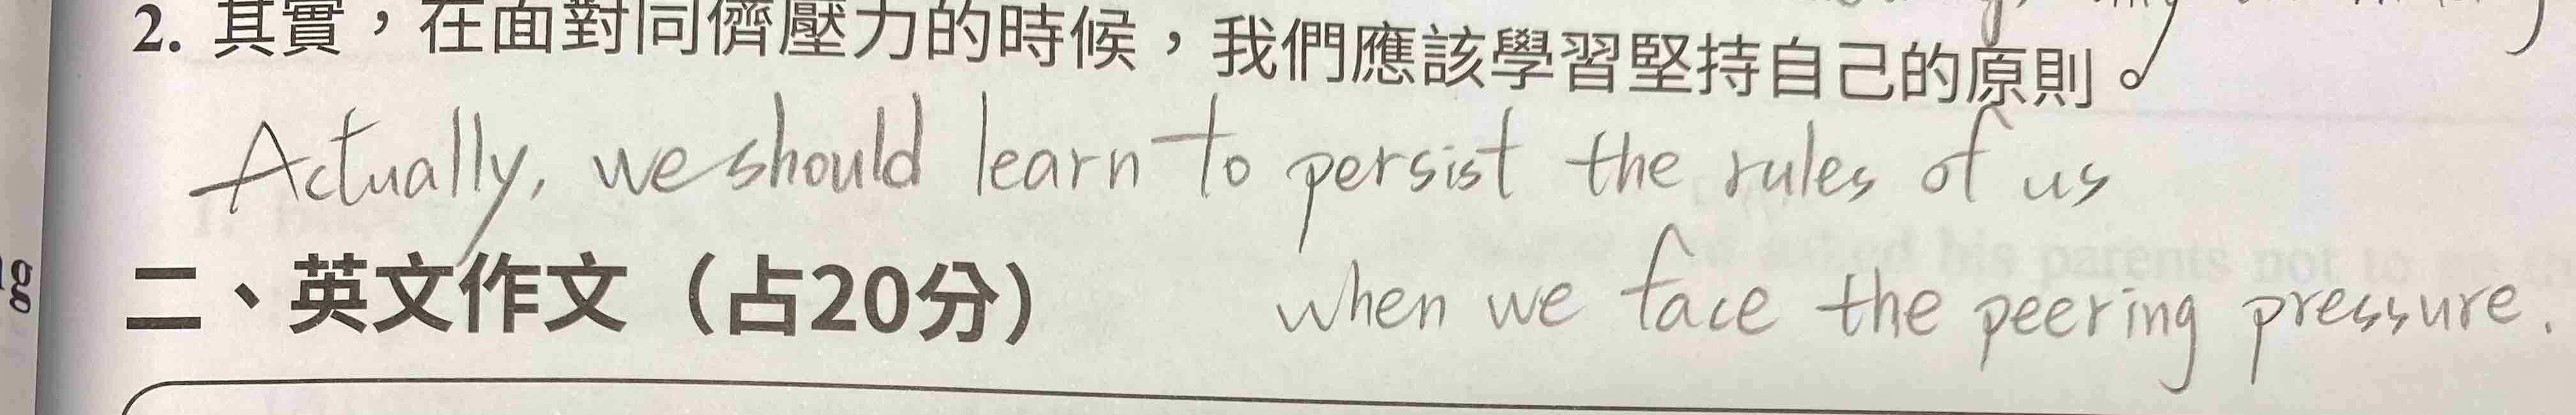 2. 其實，在面對同儕壓力的時候，我們應該學習堅持自己的原則。
Actually, we should learn to persist the rules of us
二、英文作文（占20分）
when we face the peering pressure.